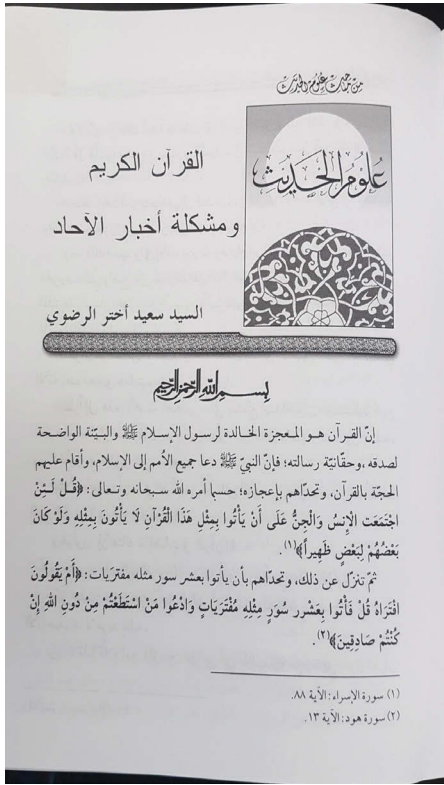 من مباحث علوم الحديث
علوم الحديث
القرآن الكريم
ومشكلة أخبار الآحاد
السيد سعيد أختر الرضوي
بسم الله الرحمن الرحيم
إنّ القرآن هو المعجزة الخالدة لرسول الإسلام ﷺ والبيّنة الواضحة
لصدقه، وحقانيّة رسالته؛ فإنّ النبيّ ﷺ دعا جميع الأمم إلى الإسلام، وأقام عليهم
الحجّة بالقرآن، وتحدّاهم بإعجازه؛ حسبما أمره الله سبحانه وتعالى: ﴿قُل لَّئِنْ
اجْتَمَعَت الْإِنسُ وَالْجِنُّ عَلَى أَنْ يَأْتُوا بِمِثْلِ هَذَا الْقُرْآنِ لَا يَأْتُونَ بِمِثْلِهِ وَلَوْ كَانَ
بَعْضُهُمْ لِبَعْضٍ ظَهِيراً﴾(١).
ثمّ تنزّل عن ذلك، وتحدّاهم بأن يأتوا بعشر سور مثله مفتريات: ﴿أَمْ يَقُولُونَ
افْتَرَاهُ قُلْ فَأْتُوا بِعَشْرِ سُوَرٍ مِثْلِهِ مُفْتَرَيَاتٍ وَادْعُوا مَنْ اسْتَطَعْتُمْ مِنْ دُونِ اللهِ إِنْ
كُنْتُمْ صَادِقِينَ﴾(٢).
(١) سورة الإسراء: الآية ٨٨.
(٢) سورة هود: الآية ١٣.